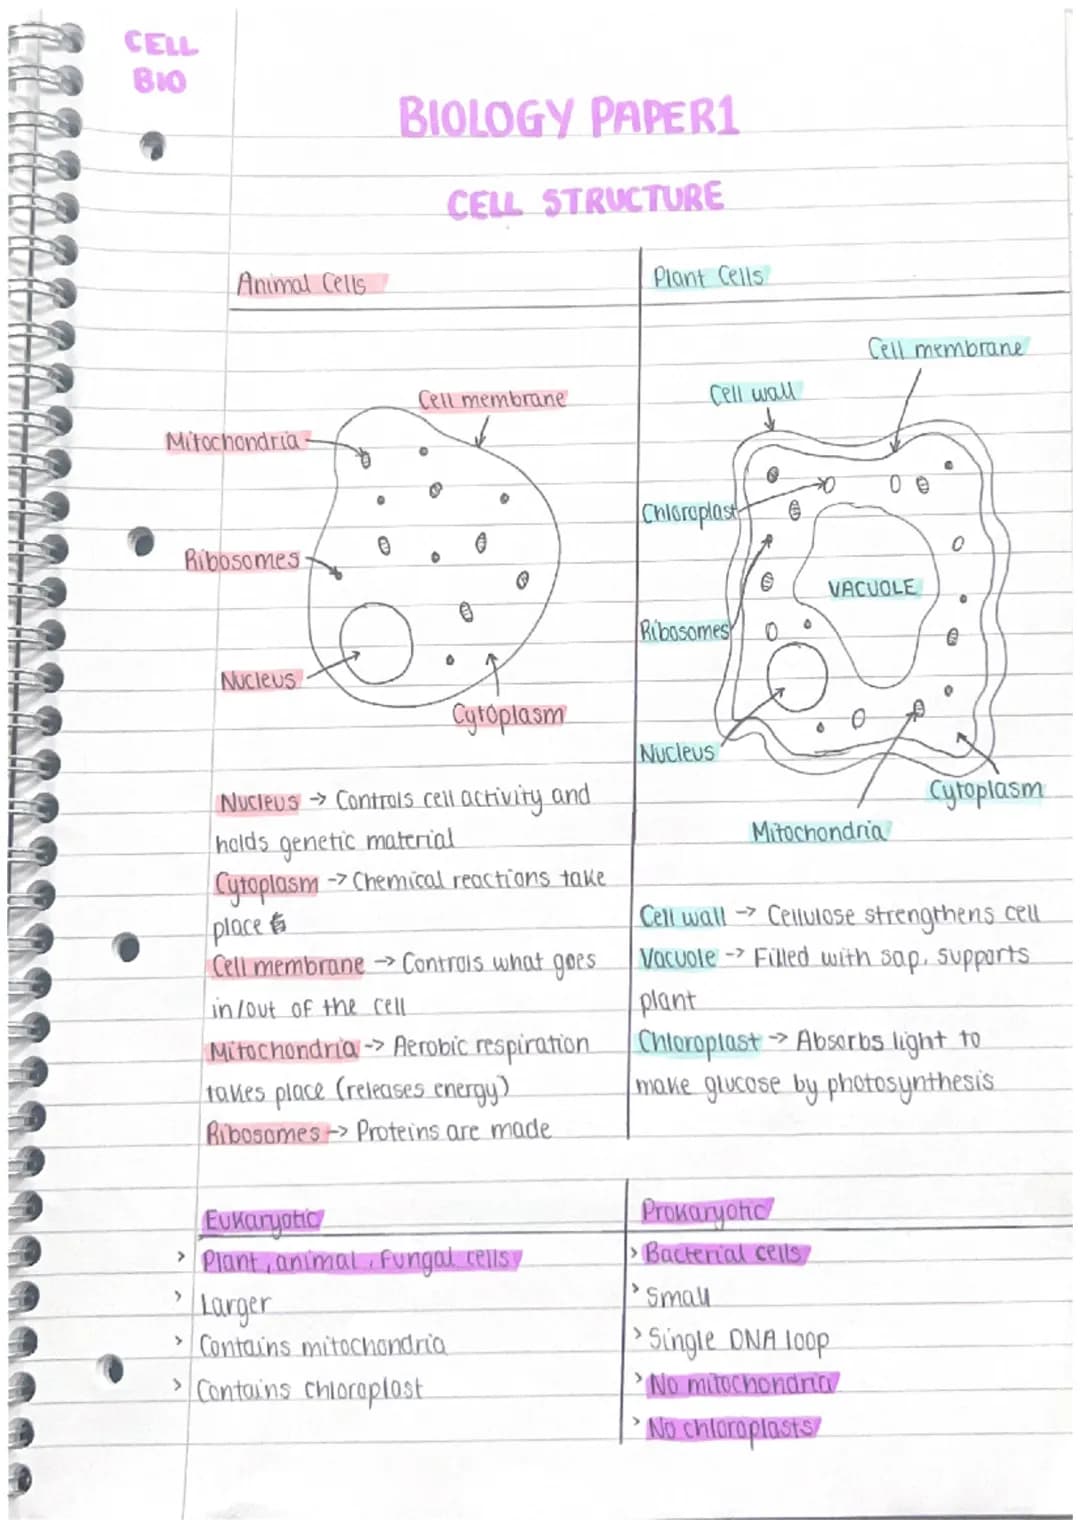 CELL
BIO
BIOLOGY PAPER1
CELL STRUCTURE
Animal Cells
Cell membrane
Mitochondria
Ribosomes
Nucleus
Cytoplasm
Nucleus -> Controls cell activity and
holds genetic material
Cytoplasm -> Chemical reactions take
place
Cell membrane -> Controls what goes
in/out of the cell
Mitochondria -> Aerobic respiration
takes place (releases energy)
Ribosomes -> Proteins are made
Plant Cells
Cell membrane
Cell wall
Chloroplast
VACUOLE
Ribosomes
Nucleus
Cytoplasm
Mitochondria
Cell wall -> Cellulose strengthens cell
Vacuole -> Filled with sap, supports
plant
Chloroplast -> Absorbs light to
make glucose by photosynthesis
Eukaryotic
> Plant, animal, fungal cells
> Larger
> Contains mitochondria
> Contains chloroplast
Prokaryotic
> Bacterial cells
> Small
> Single DNA loop
> No mitochondria
> No chloroplasts